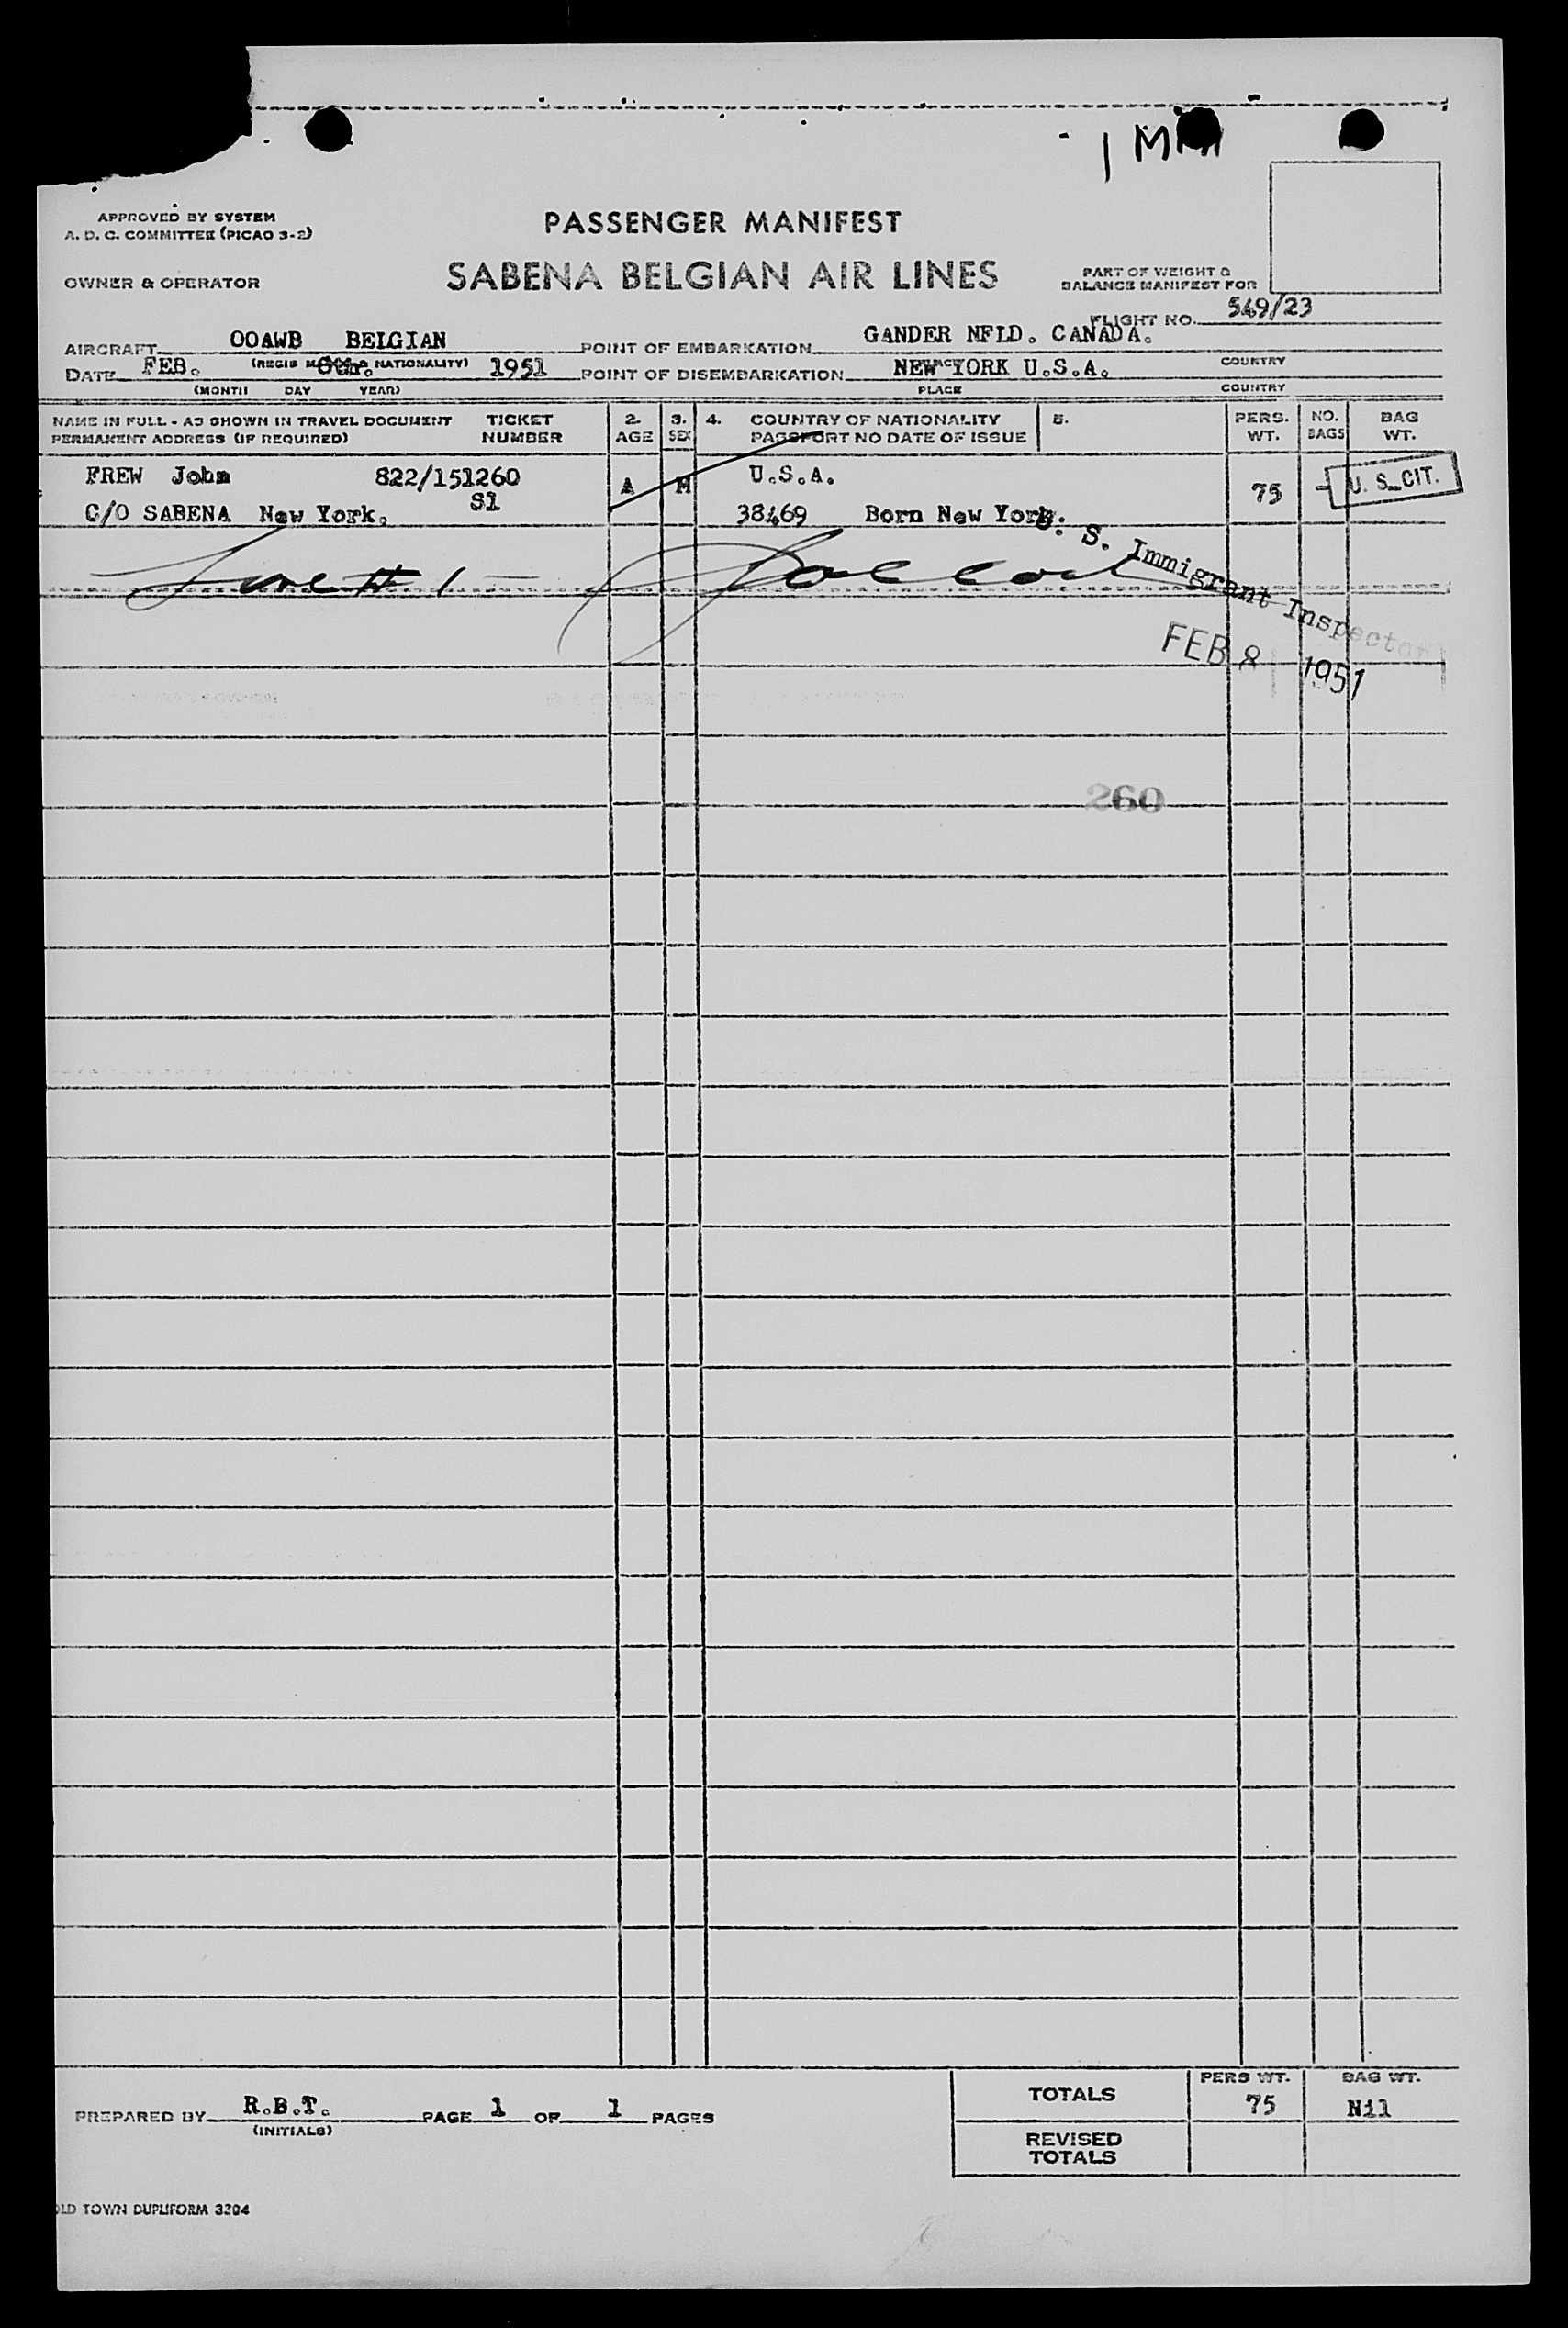 1
APPROVED BY SYSTEM
A. D. C. COMMITTEE (PICAO 3-2)
PASSENGER MANIFEST
OWNER & OPERATOR
SABENA BELGIAN AIR LINES
PART OF WEIGHT &
BALANCE MANIFEST FOR
FLIGHT NO. 549/23
AIRCRAFT OOAWB BELGIAN POINT OF EMBARKATION GANDER NFLD. CANADA.
(REGIS NATIONALITY) COUNTRY
DATE FEB. 1951 POINT OF DISEMBARKATION NEW YORK U.S.A.
(MONTH DAY YEAR) PLACE COUNTRY
NAME IN FULL - AS SHOWN IN TRAVEL DOCUMENT TICKET 2. 3. 4. COUNTRY OF NATIONALITY 5. PERS. NO. BAG
PERMANENT ADDRESS (IF REQUIRED) NUMBER AGE SEX PASSPORT NO DATE OF ISSUE WT. BAGS WT.
FREW John 822/151260 A M U.S.A. 75 - U. S. CIT.
S1
C/O SABENA New York. 38469 Born New York.
Line # 1
U. S. Immigrant Inspector
FEB 8 1951
260
TOTALS PERS WT. BAG WT.
75 Nil
PREPARED BY R.B.T. PAGE 1 OF 1 PAGES
(INITIALS)
REVISED
TOTALS
OLD TOWN DUPLIFORM 3204